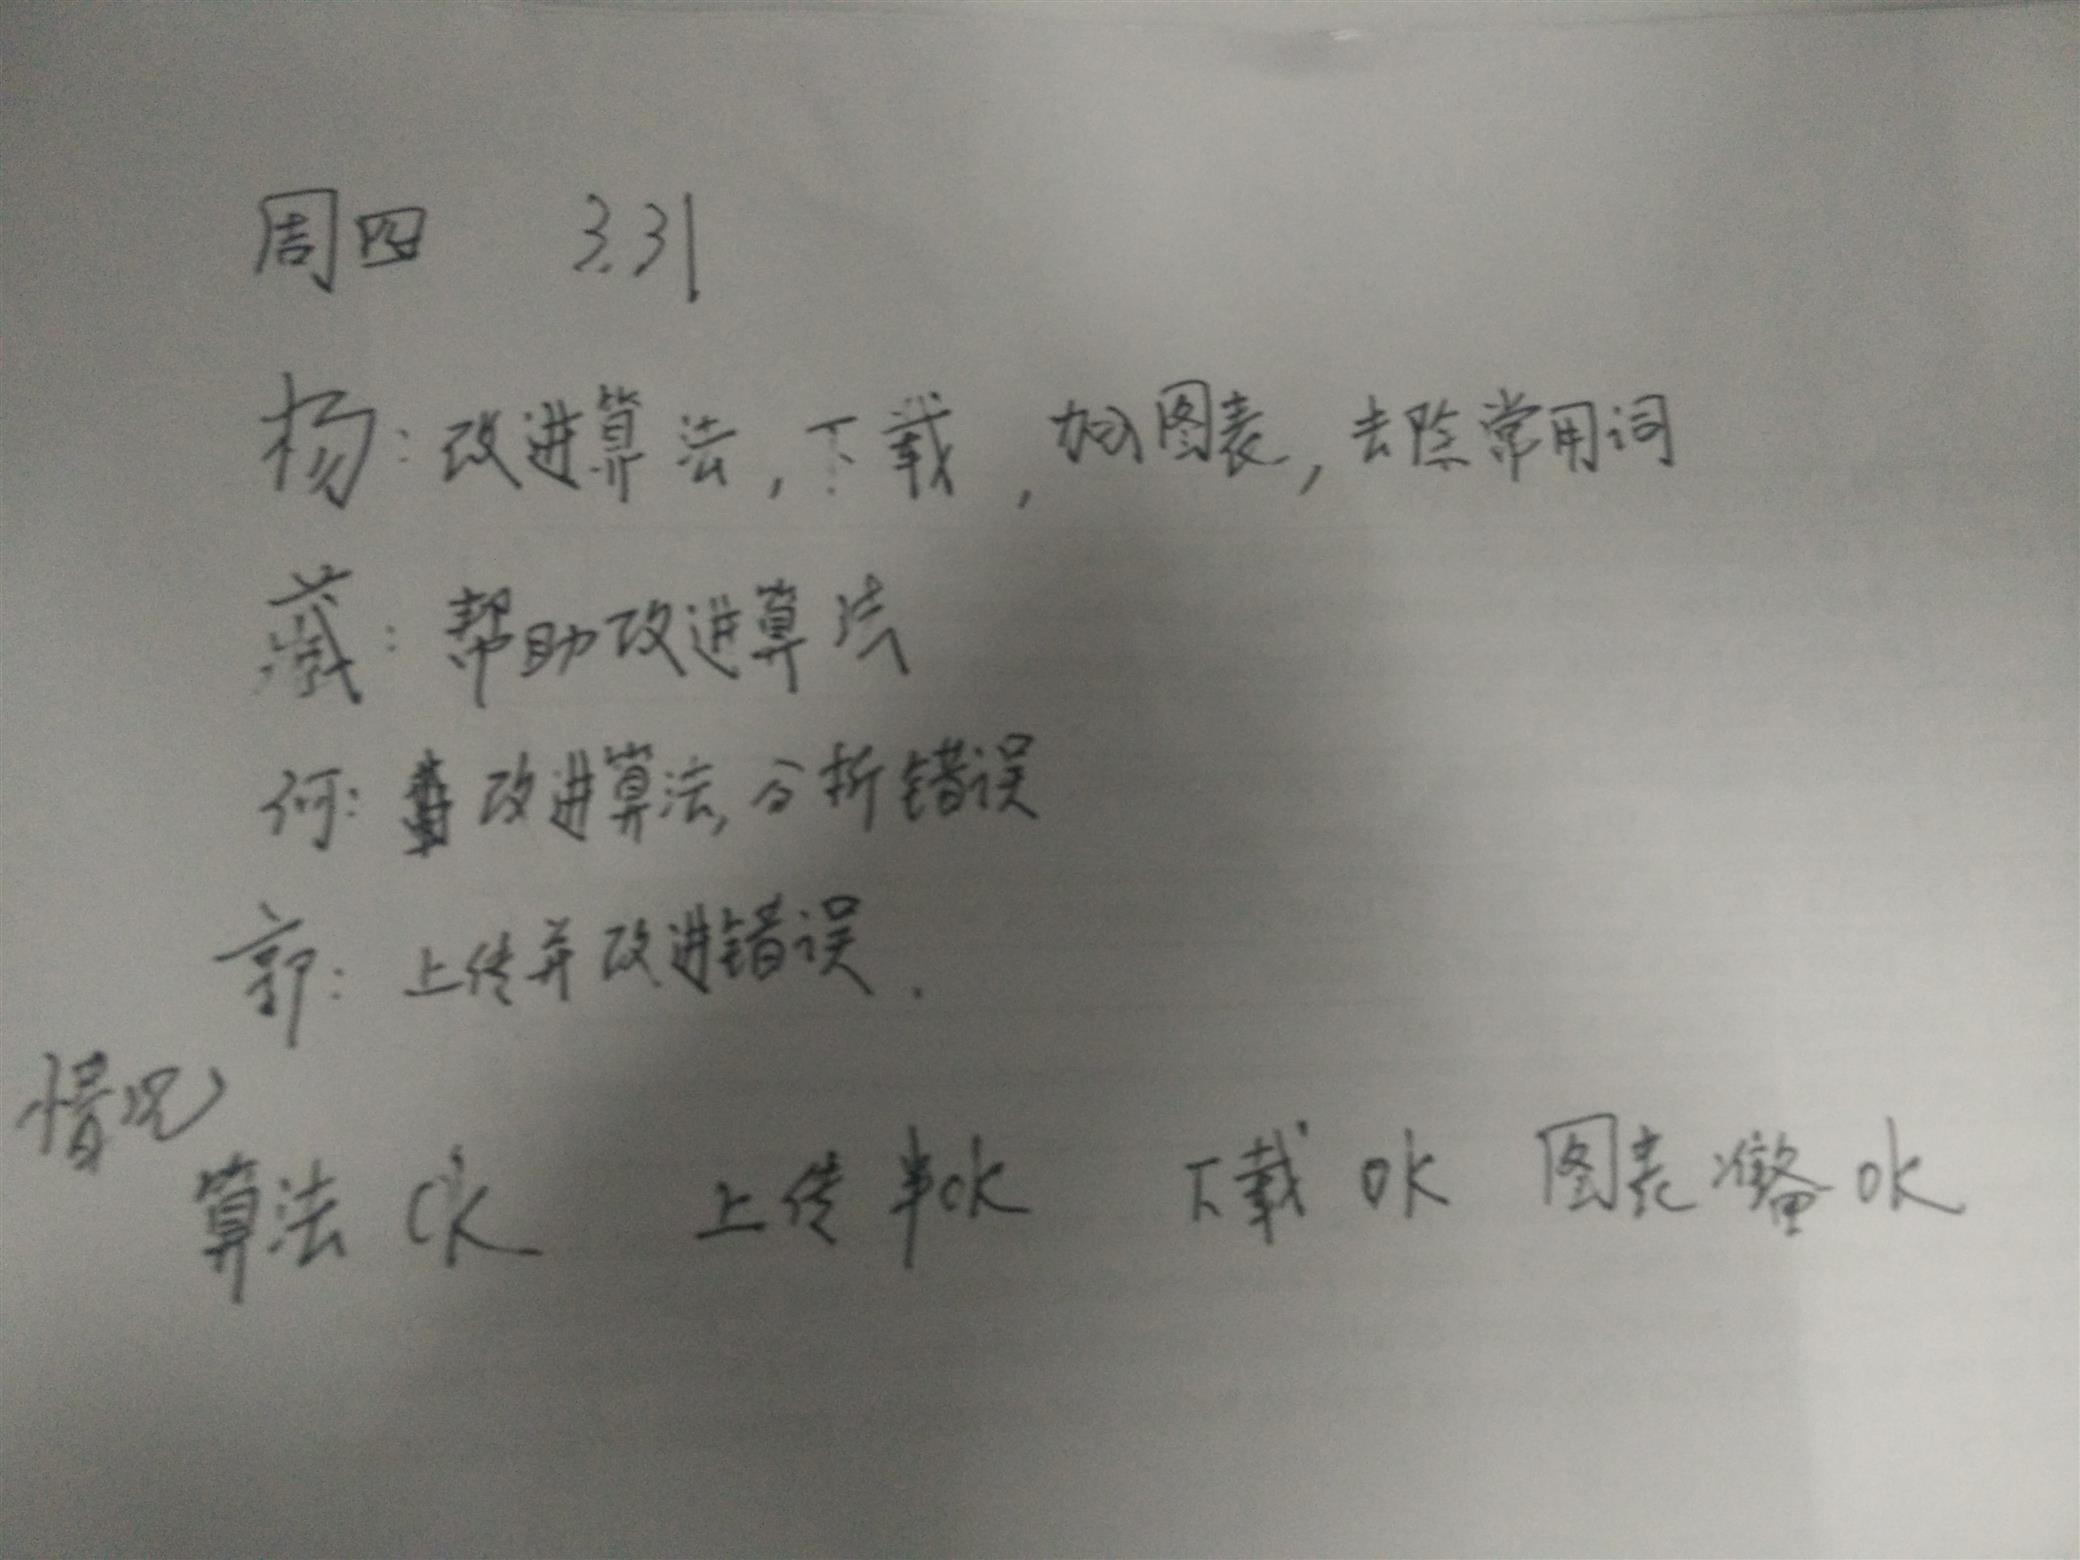 周四 3.31
杨：改进算法，下载，加图表，去除常用词
臧：帮助改进算法
何：改进算法，分析错误
郭：上传并改进错误.
情况
算法 ok 上传半ok 下载 ok 图表准备 ok